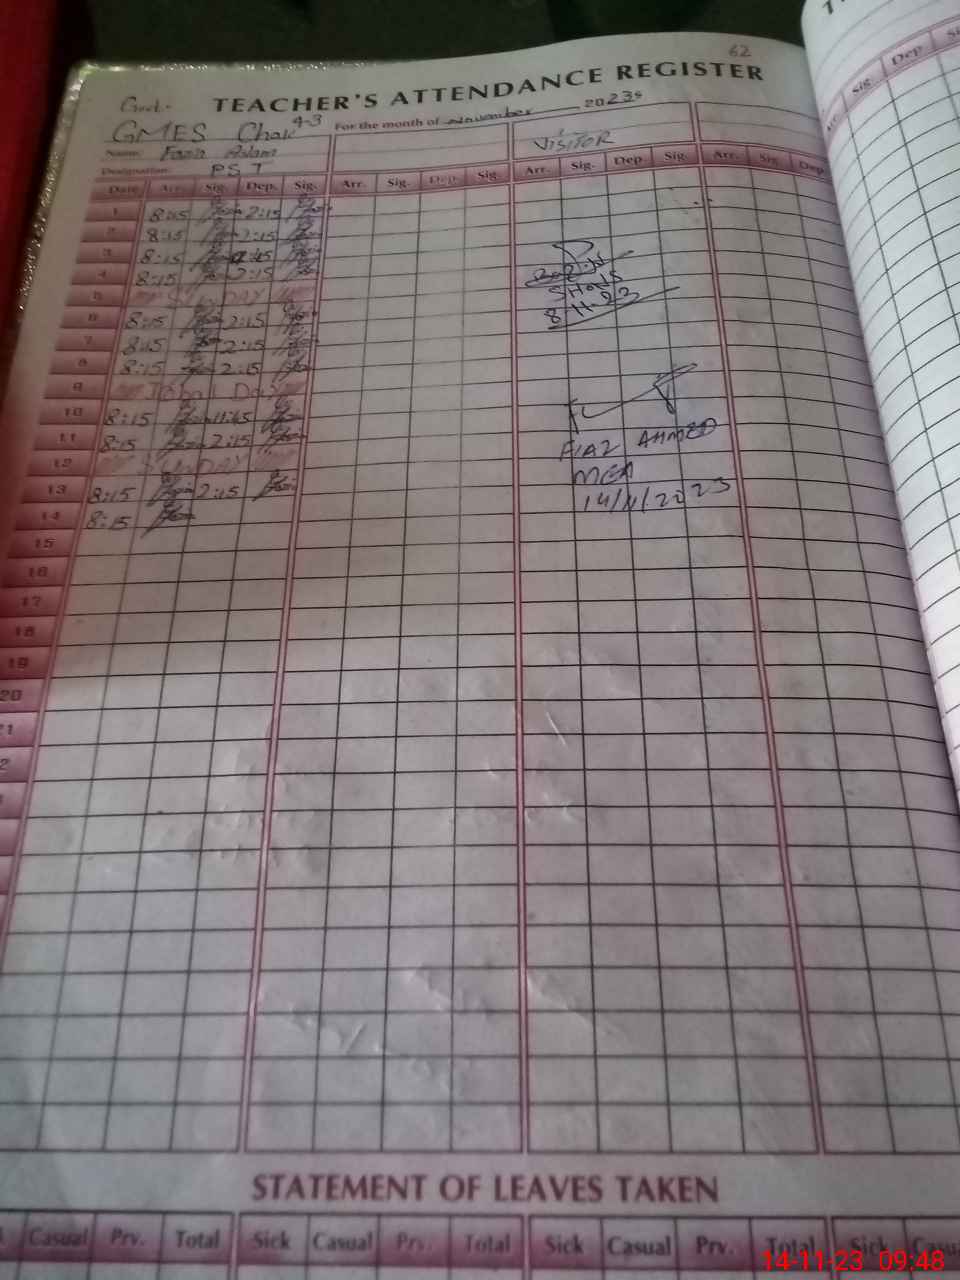 62
TEACHER'S ATTENDANCE REGISTER
Govt.
GMES Chak 4-3 For the month of November 2023
Name: Fozia Aslam VISITOR
Designation PST
Date Arr. Sig. Dep. Sig. Arr. Sig. Dep. Sig. Arr. Sig. Dep. Sig. Arr. Sig. Dep.
1 8:15 2:15
2 8:15 2:15
3 8:15
4 8:15 2:15
5 SUNDAY
6 8:15 2:15
7 8:15 2:15
8 8:15 2:15
9 Iqbal Day
10 8:15 11:45
11 8:15 2:15
12 SUNDAY
13 8:15 2:15
14 8:15
15
16
17
18
19
20
8-11-23
FIAZ AHMED
MEA
14/11/2023
STATEMENT OF LEAVES TAKEN
Casual Prv. Total Sick Casual Prv. Total Sick Casual Prv. Total Sick
Arr. Sig. Dep.
14-11-23 09:48